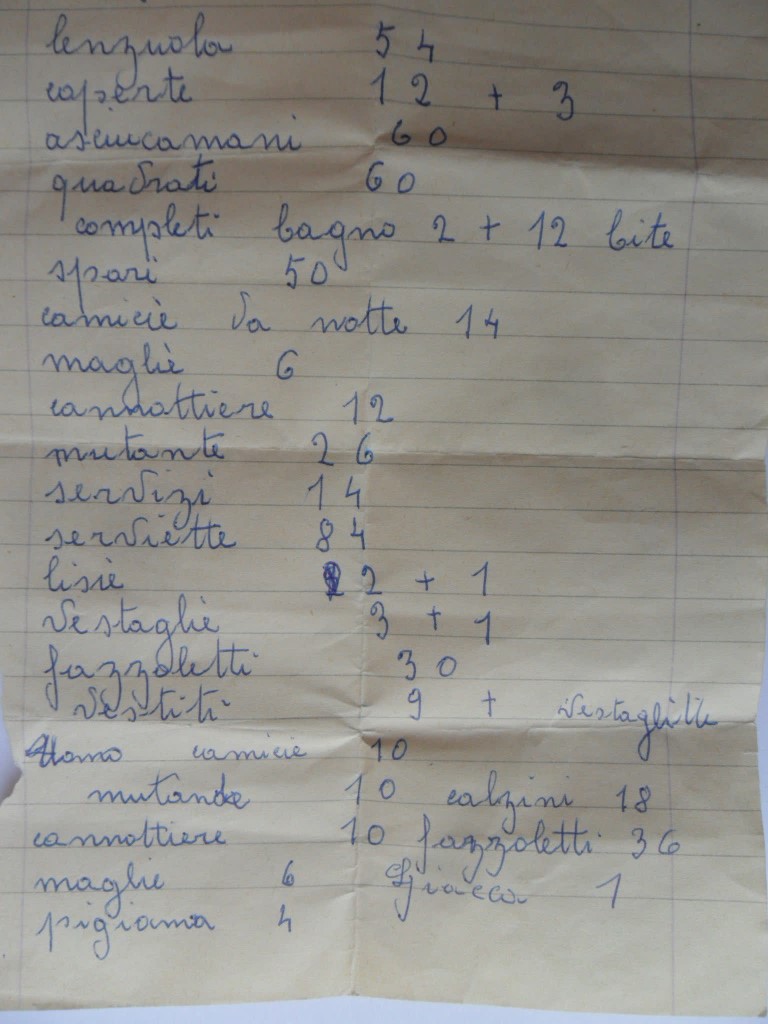 lenzuola 54
coperte 12 + 3
asciucamani 60
quadrati 60
completi bagno 2 + 12 bite
spari 50
camicie da notte 14
maglie 6
cannottiere 12
mutante 26
servizi 14
serviette 84
lisie 2 + 1
vestaglie 3 + 1
fazzoletti 30
vestiti 9 +
Uomo camicie 10
mutande 10 calzini 18
cannottiere 10 fazzoletti 36
maglie 6 Giacca 1
pigiama 4